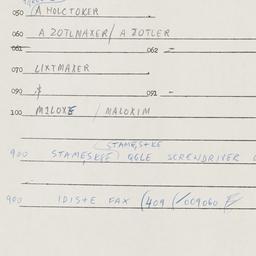 050 A HOLCTOKER
060 A ZOTLNAXER / A ZOTLER
061 062 =
070 LIXTMAKER
090 091 -
100 MILOXE / MALOKIM
STAMESTKE
900 STAMESKEE QGLE SCREWDRIVER
900 IDISTE FAX (409 (009060